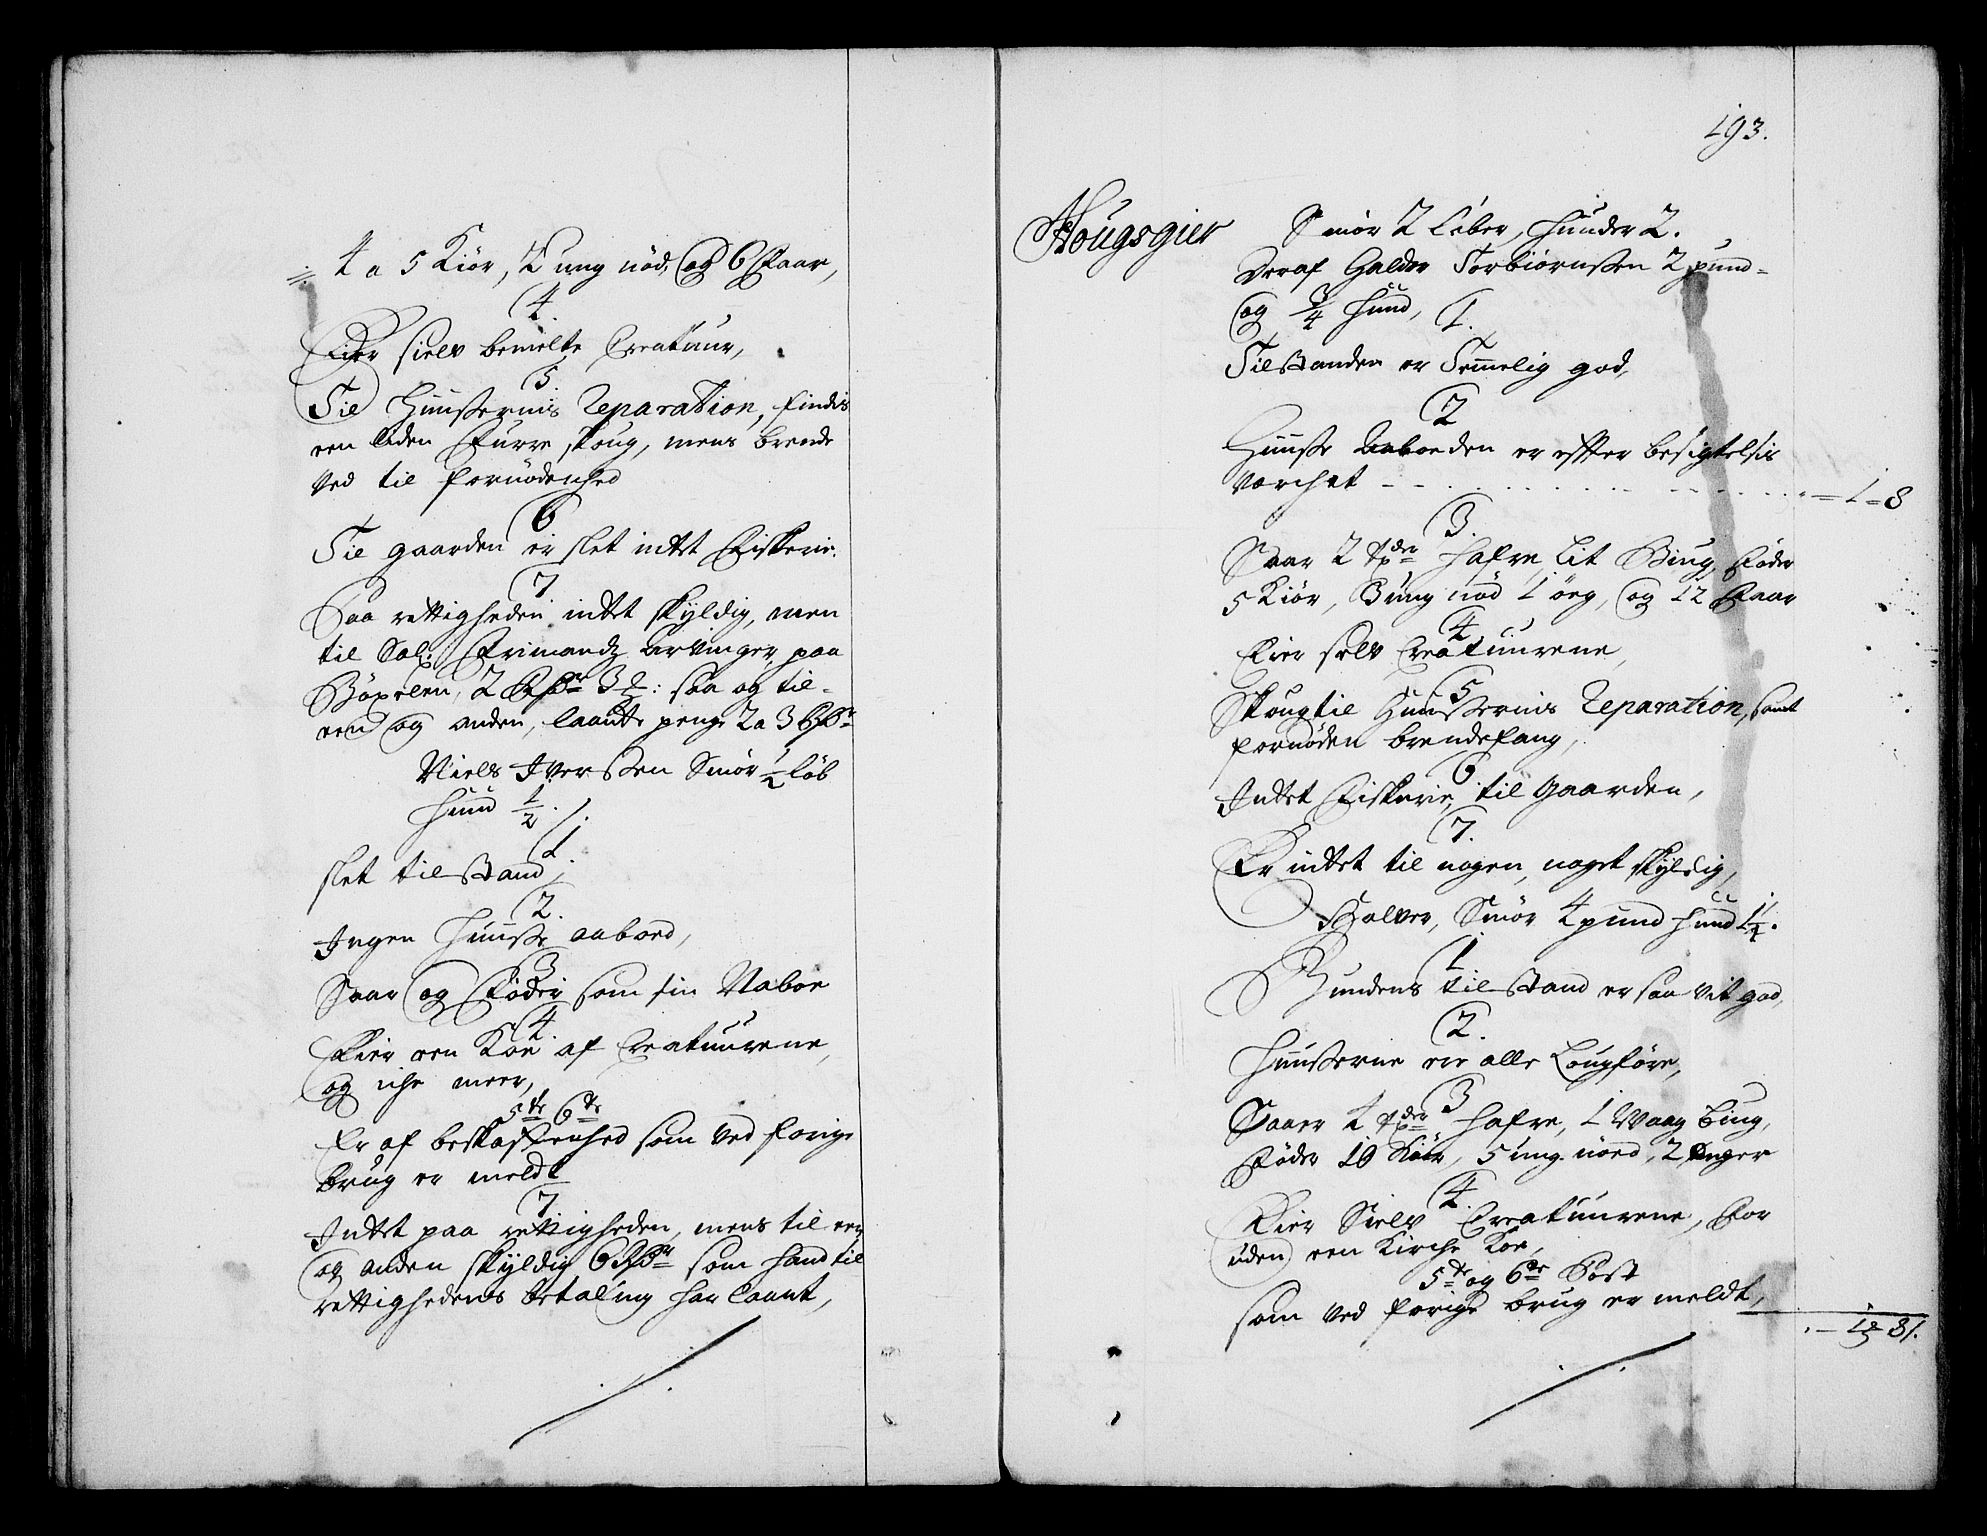 4 a 5 Kiör, 2 ung nöd, og 6 Faar,
4.
Eier sielv bemelte Creatuur,
5.
Til Huusernis Reparation, findis
een liden Furre skoug, mens brende
ved til fornödenhed
6
Til gaarden er slet intet Fiskerie.
7
Paa rettigheden intet skyldig, men
til Sal: Frimands Arvinger paa
Böxelen, 2 Rdr 3 : saa og til
een og anden, laante penge 2 a 3 Rdr
Niels Iverssen Smör ½ löb
huud ½.
1.
slet tilstand,
2.
Ingen Huusse aaboed,
3
Saar og Föder som sin Naboe
4.
Eier een Koe af Creatuurene,
og iche meer,
5te 6te
Er af beskaffenhed som ved forige
brug er meldt
7
Intet paa rettigheden, mens til een
og anden skyldig 6 Rdr som hand til
rettighedens betaling har laant,
193.
Hougsgier
Smör 2 Löber, huuder 2.
Deraf Haldor Torbiörnssen 2 pund
og ¾ huud,
1.
Tilstanden er Temmelig god,
2
Huusse Aaboeden er effter besigtelsis
værchet - - - 1 - 8
3.
Saar 2 Tpder hafre, lit Biug, föder
5 Kiör, 3 ung nöd 1 öeg, og 12 Faar
4
Eier selv Creatuurene,
5
Skoug til Huussernis Reparation, samt
fornöden brendefang,
6
Intet Fiskerie til Gaarden,
7.
Er intet til nogen, noget skyldig,
Halver, Smör 4 pund huud 1¼.
1
Bundens tilstand er saa vit god,
2.
Huusserne ere alle Lougföre,
3
Saaer 4 Tpder hafre, 1 Waag Biug,
föder 10 Kiör, 5 ung nöed, 2 öeger
4.
Eier Sielv Creatuurene, For
uden een Kirche Koe,
5te og 6te Post
som ved forige brug er meldt,